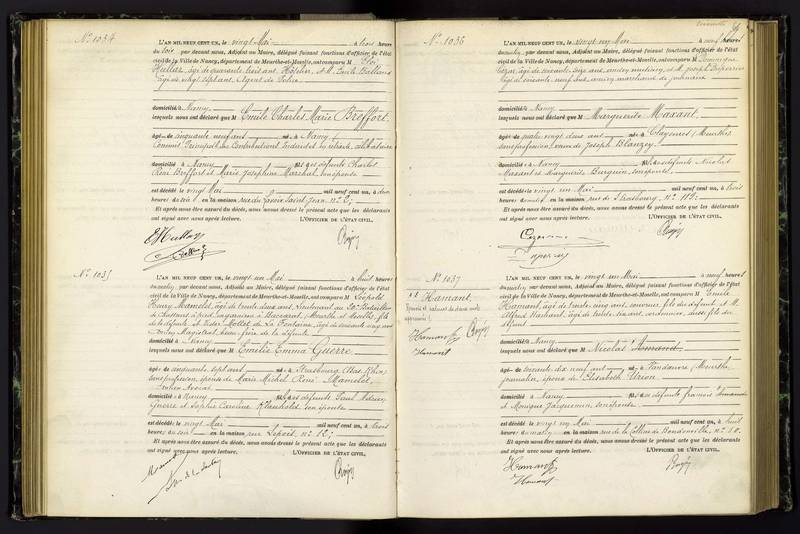 N° 1034
L'AN MIL NEUF CENT UN, le vingt Mai à trois heures
du soir, par devant nous, Adjoint au Maire, délégué faisant fonctions d'officier de l'état
civil de la Ville de Nancy, département de Meurthe-et-Moselle, ont comparu M Eloi
âgé de quarante trois ans, et M. Emile
âgé de vingt sept ans, Agent de Police
domiciliés à Nancy
lesquels nous ont déclaré que M Emile Charles Marie Breffort
âgé de cinquante neuf ans né à Nancy
Commis Principal des Contributions Indirectes en retraite, célibataire
domicilié à Nancy fils des défunts Charles
René Breffort et Marie Joséphine Marchal, son épouse
est décédé le vingt Mai mil neuf cent un, à deux
heures du soir en la maison rue du Saint Jean n° 2;
Et après nous être assuré du décès, nous avons dressé le présent acte que les déclarants
ont signé avec nous après lecture. L'OFFICIER DE L'ÉTAT CIVIL,
N° 1035
L'AN MIL NEUF CENT UN, le vingt un Mai à huit heures
du matin, par devant nous, Adjoint au Maire, délégué faisant fonctions d'officier de l'état
civil de la Ville de Nancy, département de Meurthe-et-Moselle, ont comparu M Léopold
Henry Mamelet, âgé de trente deux ans, Lieutenant au 20e Bataillon
de Chasseurs à pied, en garnison à Baccarat, (Meurthe et Moselle), fils
de la défunte et Mollet de La Fontaine, âgé de cinquante cinq ans
Magistrat, beau-frère de la défunte
domicilié à Nancy
lesquels nous ont déclaré que M Emélie Emma Guerre
âgée de cinquante sept ans née à Strasbourg (Bas Rhin)
sans profession, épouse de Marie Michel René Mamelet,
ancien Avocat
domiciliée à Nancy fille des défunts Paul Adrien
Guerre et Sophie Caroline son épouse
est décédée le vingt Mai mil neuf cent un, à trois
heures du soir en la maison rue Lepois, n° 12;
Et après nous être assuré du décès, nous avons dressé le présent acte que les déclarants
ont signé avec nous après lecture. L'OFFICIER DE L'ÉTAT CIVIL,
N° 1036
L'AN MIL NEUF CENT UN, le vingt un Mai à neuf heures
du matin, par devant nous, Adjoint au Maire, délégué faisant fonctions d'officier de l'état
civil de la Ville de Nancy, département de Meurthe-et-Moselle, ont comparu M Dominique
âgé de soixante ans, ancien et M. Joseph
âgé de soixante neuf ans, ancien marchand de journaux
domiciliés à Nancy
lesquels nous ont déclaré que M Marguerite Maxant
âgée de quatre vingt deux ans née à Clayeures (Meurthe)
sans profession, veuve de Joseph Blanzey
domiciliée à Nancy fille des défunts Nicolas
Maxant et Marguerite son épouse
est décédée le vingt un Mai mil neuf cent un, à trois
heures du matin en la maison rue de Strasbourg, n° 112;
Et après nous être assuré du décès, nous avons dressé le présent acte que les déclarants
ont signé avec nous après lecture. L'OFFICIER DE L'ÉTAT CIVIL,
N° 1037
Hamant
L'AN MIL NEUF CENT UN, le vingt un Mai à neuf heures
du matin, par devant nous, Adjoint au Maire, délégué faisant fonctions d'officier de l'état
civil de la Ville de Nancy, département de Meurthe-et-Moselle, ont comparu M Emile
Hamant, âgé de trente cinq ans, fils du défunt et M.
Alfred Hamant, âgé de trente ans, cordonnier, aussi fils du
défunt
domiciliés à Nancy
lesquels nous ont déclaré que M Nicolas
âgé de soixante dix neuf ans né à Tandœuvre (Meurthe)
journalier, époux de Elisabeth Urion
domicilié à Nancy fils des défunts Francis
et Monique Jacquemin, son épouse
est décédé le vingt un Mai mil neuf cent un, à huit
heures du matin en la maison rue de la Colline de Boudonville, n°
Et après nous être assuré du décès, nous avons dressé le présent acte que les déclarants
ont signé avec nous après lecture. L'OFFICIER DE L'ÉTAT CIVIL,
Hamant
Hamant